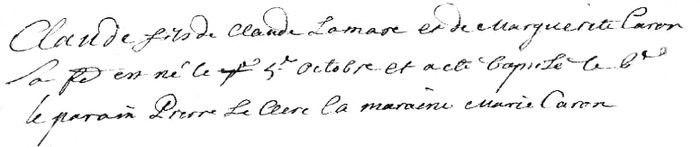 Claude fils de Claude Lamare et de Marguerite Caron
sa fe en né le 5e octobre et a été baptisé le 6e
le parain Pierre Le Clerc la maraine Marie Caron